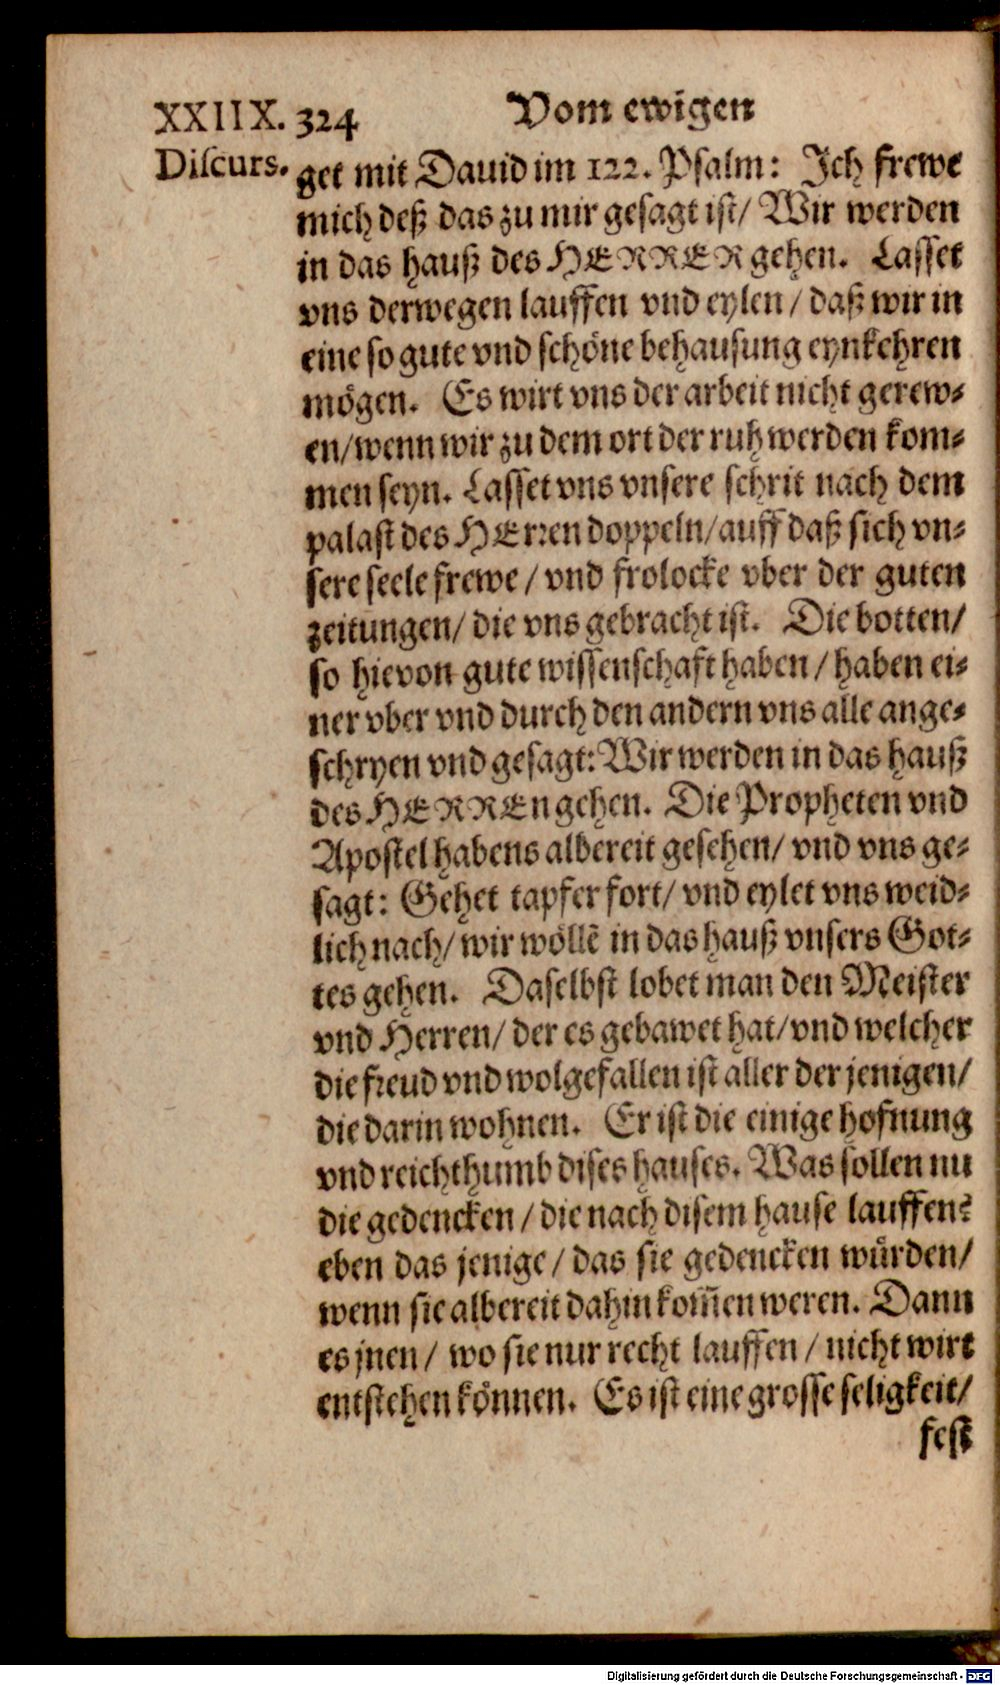 XXIIX. 324 Vom ewigen
Discurs.
get mit Dauid im 122. Psalm: Ich frewe
mich deß das zu mir gesagt ist/ Wir werden
in das hauß des HERREN gehen. Lasset
vns derwegen lauffen vnd eylen / daß wir in
eine so gute vnd schöne behausung eynkehren
mögen. Es wirt vns der arbeit nicht gerew-
en/ wenn wir zu dem ort der ruh werden kom-
men seyn. Lasset vns vnsere schrit nach dem
palast des HErren doppeln/ auff daß sich vn-
sere seele frewe / vnd frolocke vber der guten
zeitungen/ die vns gebracht ist. Die botten/
so hievon gute wissenschaft haben / haben ei-
ner vber vnd durch den andern vns alle ange-
schryen vnd gesagt: Wir werden in das hauß
des HERREn gehen. Die Propheten vnd
Apostel habens albereit gesehen/ vnd vns ge-
sagt: Gehet tapfer fort/ vnd eylet vns weid-
lich nach/ wir wöllē in das hauß vnsers Got-
tes gehen. Daselbst lobet man den Meister
vnd Herren/ der es gebawet hat/ vnd welcher
die freud vnd wolgefallen ist aller der jenigen/
die darin wohnen. Er ist die einige hofnung
vnd reichthumb dises hauses. Was sollen nu
die gedencken / die nach disem hause lauffen?
eben das jenige / das sie gedencken würden/
wenn sie albereit dahin kom̄en weren. Dann
es jnen / wo sie nur recht lauffen / nicht wirt
entstehen können. Es ist eine grosse seligkeit/
fest
Digitalisierung gefördert durch die Deutsche Forschungsgemeinschaft - DFG